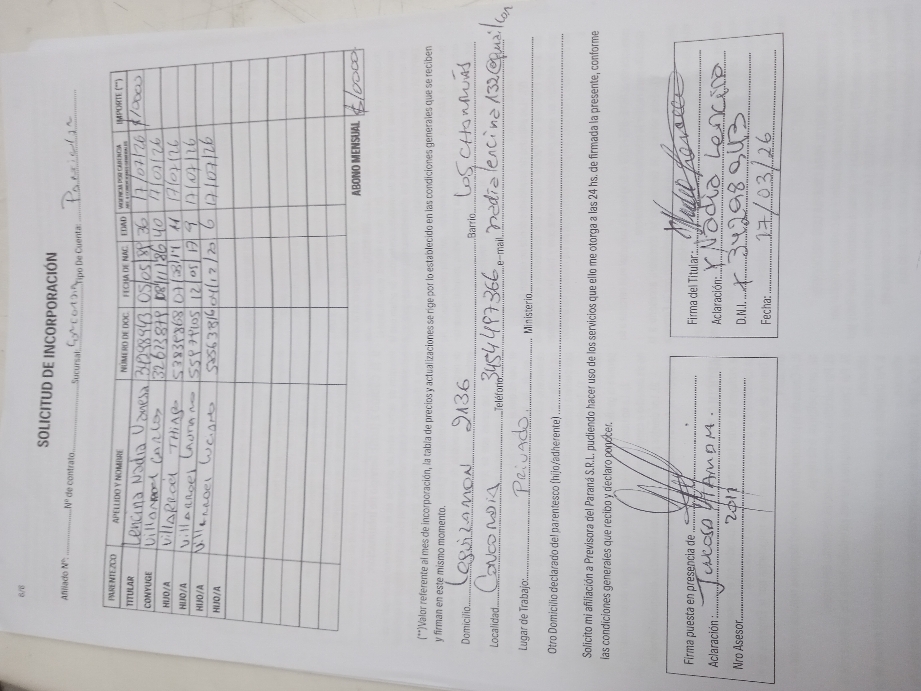 6/6
SOLICITUD DE INCORPORACIÓN
Afiliado Nº: Nº de contrato Sucursal: Concordia Tipo De Cuenta: Particular
PARENTEZCO APELLIDO Y NOMBRE NÚMERO DE DOC. FECHA DE NAC. EDAD VIGENCIA POR CARENCIA IMPORTE (**)
TITULAR Lencina Nadia Vanesa 34298943 05/05/89 36 17/07/26 $10000
CONYUGE Villarroel Carlos 40 17/07/26
HIJO/A VillARRoel THIAGO 53839868 07/03/14 11 17/07/26
HIJO/A Villarroel 55979105 12/05/17 9 17/07/26
HIJO/A Villarroel Luciano 6 17/07/26
HIJO/A
ABONO MENSUAL $10000
(**)Valor referente al mes de incorporación, la tabla de precios y actualizaciones se rige por lo establecido en las condiciones generales que se reciben
y firman en este mismo momento.
Domicilio Leguizamon 2136 Barrio LOS CHANAVÁS
Localidad Concordia Teléfono 3454497366 e-mail nadialencina132@gmail.com
Lugar de Trabajo: PRIVADO Ministerio
Otro Domicilio declarado del parentesco (hijo/adherente)
Solicito mi afiliación a Previsora del Paraná S.R.L. pudiendo hacer uso de los servicios que ello me otorga a las 24 hs. de firmada la presente, conforme
las condiciones generales que recibo y declaro conocer.
Firma puesta en presencia de
Aclaración:
Nro Asesor 2017
Firma del Titular:
Aclaración: x Nadia Lencina
D.N.I. x 34298943
Fecha: 17/03/26